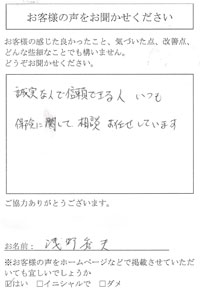 お客様の声をお聞かせください
お客様の感じた良かったこと、気づいた点、改善点、
どんな些細なことでも構いません。
どうぞお聞かせください。
誠実な人で信頼できる人 いつも
保険に関して 相談 お任せしています
ご協力ありがとうございます。
お名前: 浅野
※お客様の声をホームページなどで掲載させていただ
いても宜しいでしょうか
☑はい □イニシャルで □ダメ